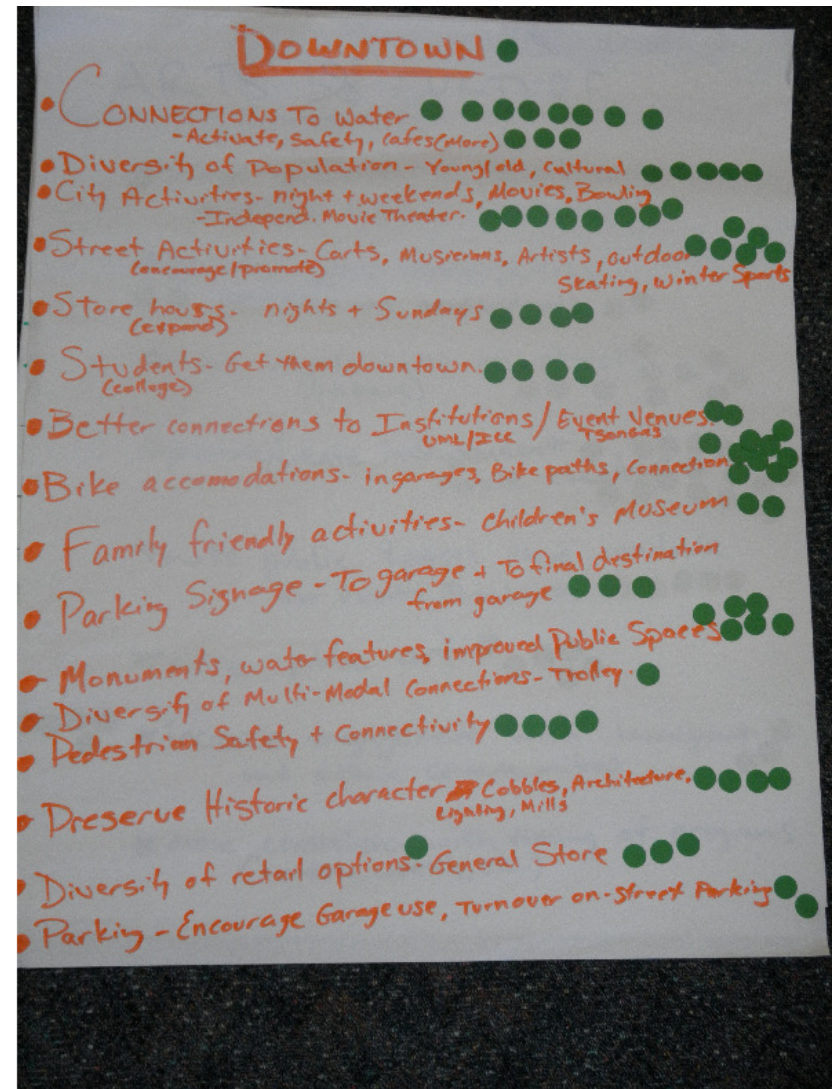 DOWNTOWN
• CONNECTIONS TO Water
-Activate, Safety, Cafes (More)
• Diversity of Population - Young/old, Cultural
• City Activities - night + weekends, Movies, Bowling
-Independ. Movie Theater.
• Street Activities - Carts, Musicians, Artists, outdoor
(encourage/promote) Skating, Winter Sports
• Store hours - nights + Sundays
(expand)
• Students - Get them downtown.
(college)
• Better connections to Institutions / Event Venues.
UML/ICC Tsongas
• Bike accomodations - in garages, Bike paths, Connection
• Family friendly activities - Children's Museum
• Parking Signage - To garage + To final destination
from garage
• Monuments, water features, improved Public Spaces
• Diversity of Multi-Modal Connections - Trolley.
• Pedestrian Safety + Connectivity
• Preserve Historic character Cobbles, Architecture,
Lighting, Mills
• Diversity of retail options - General Store
• Parking - Encourage Garage use, Turnover on-Street Parking